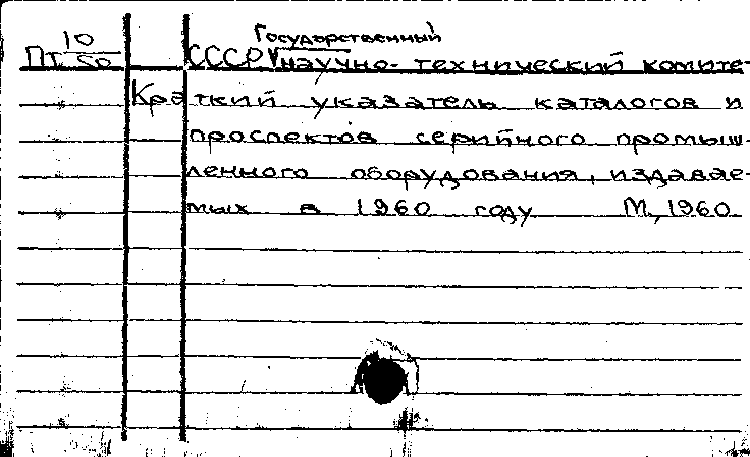 Государственный
Пт 10/50 СССР научно-технический комите-
Краткий указатель каталогов и
проспектов серийного промыш-
ленного оборудования, издавае-
мых в 1960 году М, 1960